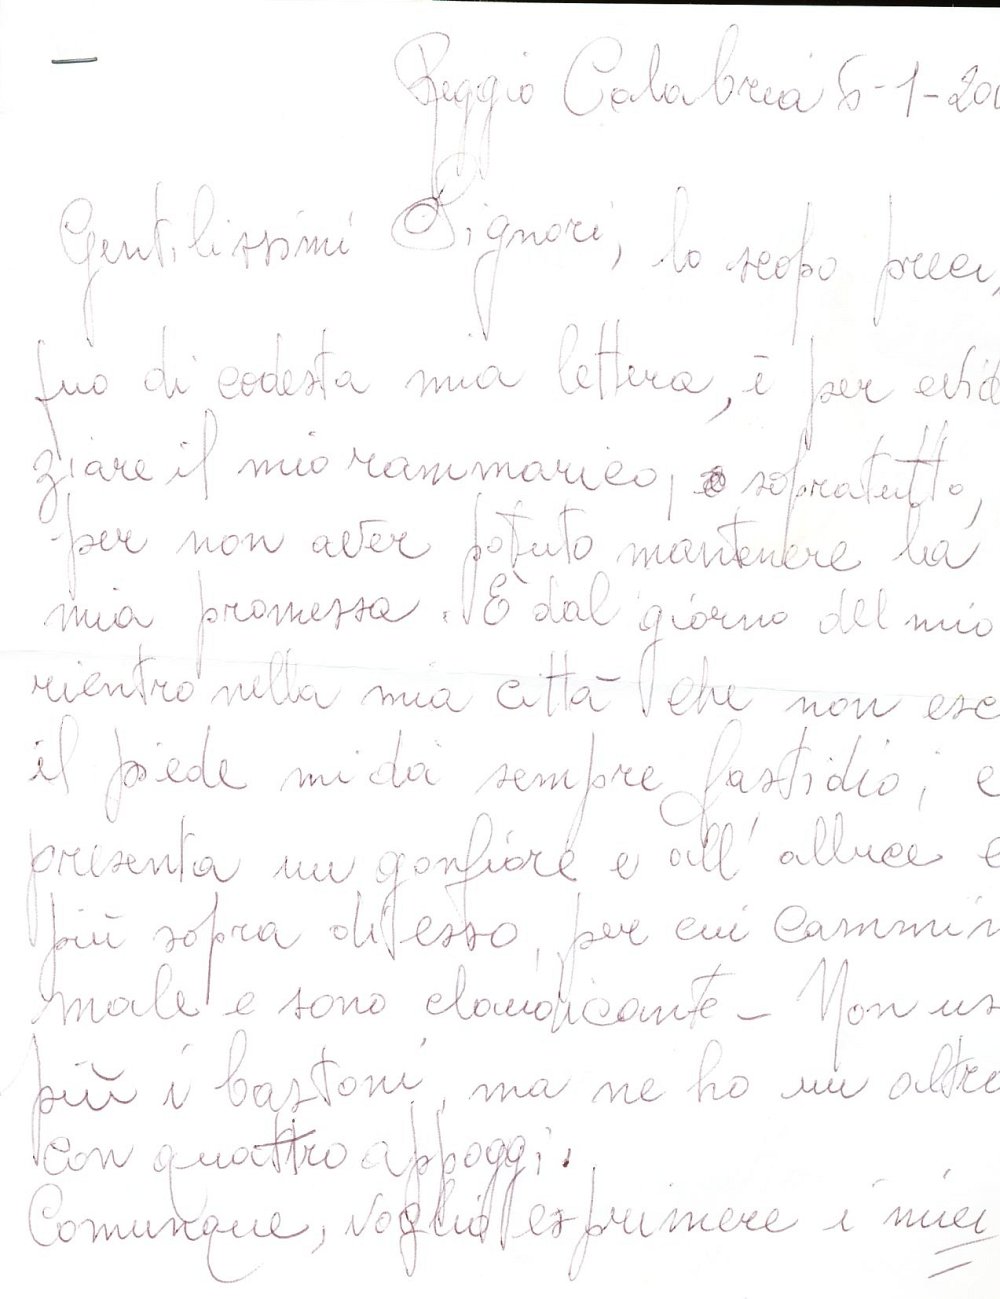 Reggio Calabria 6-1-200
Gentilissimi Signori, lo scopo preci,
puo di codesta mia lettera, è per evid
ziare il mio rammarico, sopratutto,
per non aver potuto mantenere la
mia promessa. È dal giorno del mio
rientro nella mia città che non esc
il piede mi dà sempre fastidio, e
presenta un gonfiore e all'alluce e
più sopra di esso, per cui cammin
male e sono claudicante - Non us
più i bastoni, ma ne ho un altro
con quattro appoggi.
Comunque, voglio esprimere i miei